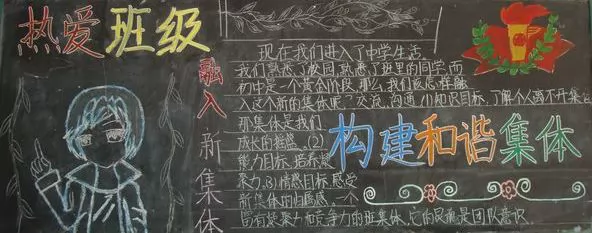 热爱班级
融入新集体
现在我们进入了中学生活
我们熟悉了校园,熟悉了班里的同学,而
初中是一个黄金阶段,那么,我们应怎样融
入这个新的集体呢?交流,沟通,(1)知识目标,了解个人离不开集
那集体是我们
成长的摇篮。(2)
能力目标,培养凝
聚力,(3)情感目标,感受
新集体的归属感。一个
富有凝聚力和竞争力的班集体,它的灵魂是团队意识
构建和谐集体